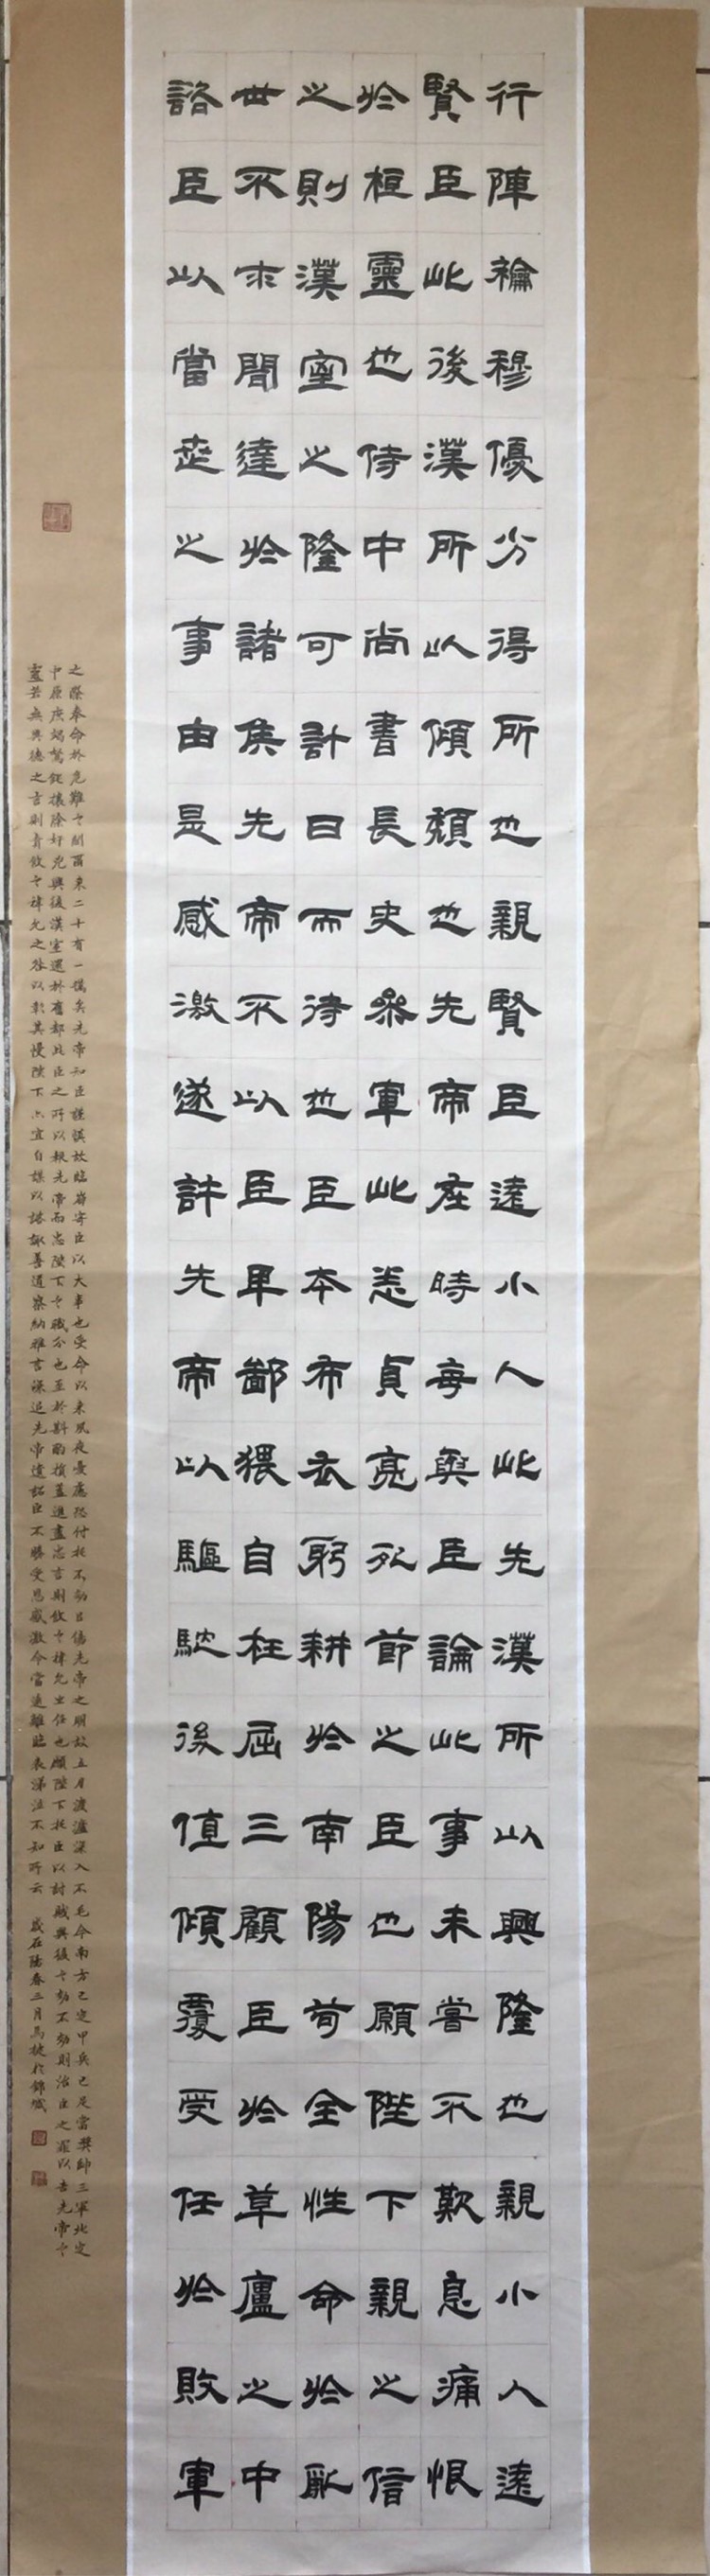 行陣龢穆優劣得所也親賢臣遠小人此先漢所以興隆也親小人遠
賢臣此後漢所以傾頹也先帝在時每與臣論此事未嘗不歎息痛恨
於桓靈也侍中尚書長史參軍此悉貞亮死節之臣也願陛下親之信
之則漢室之隆可計日而待也臣本布衣躬耕於南陽苟全性命於亂
世不求聞達於諸侯先帝不以臣卑鄙猥自枉屈三顧臣於草廬之中
諮臣以當世之事由是感激遂許先帝以驅馳後值傾覆受任於敗軍
之際奉命於危難之間爾來二十有一載矣先帝知臣謹慎故臨崩寄臣以大事也受命以來夙夜憂慮恐付托不效以傷先帝之明故五月渡瀘深入不毛今南方已定甲兵已足當獎帥三軍北定
中原庶竭駑鈍攘除奸兇興復漢室還於舊都此臣之所以報先帝而忠陛下之職分也至於斟酌損益進盡忠言則攸之禕允之任也願陛下托臣以討賊興復之效不效則治臣之罪以告先帝之
靈若無興德之言則責攸之禕允之咎以彰其慢陛下亦宜自謀以諮諏善道察納雅言深追先帝遺詔臣不勝受恩感激今當遠離臨表涕泣不知所云 歲在陽春三月馬捷於錦城